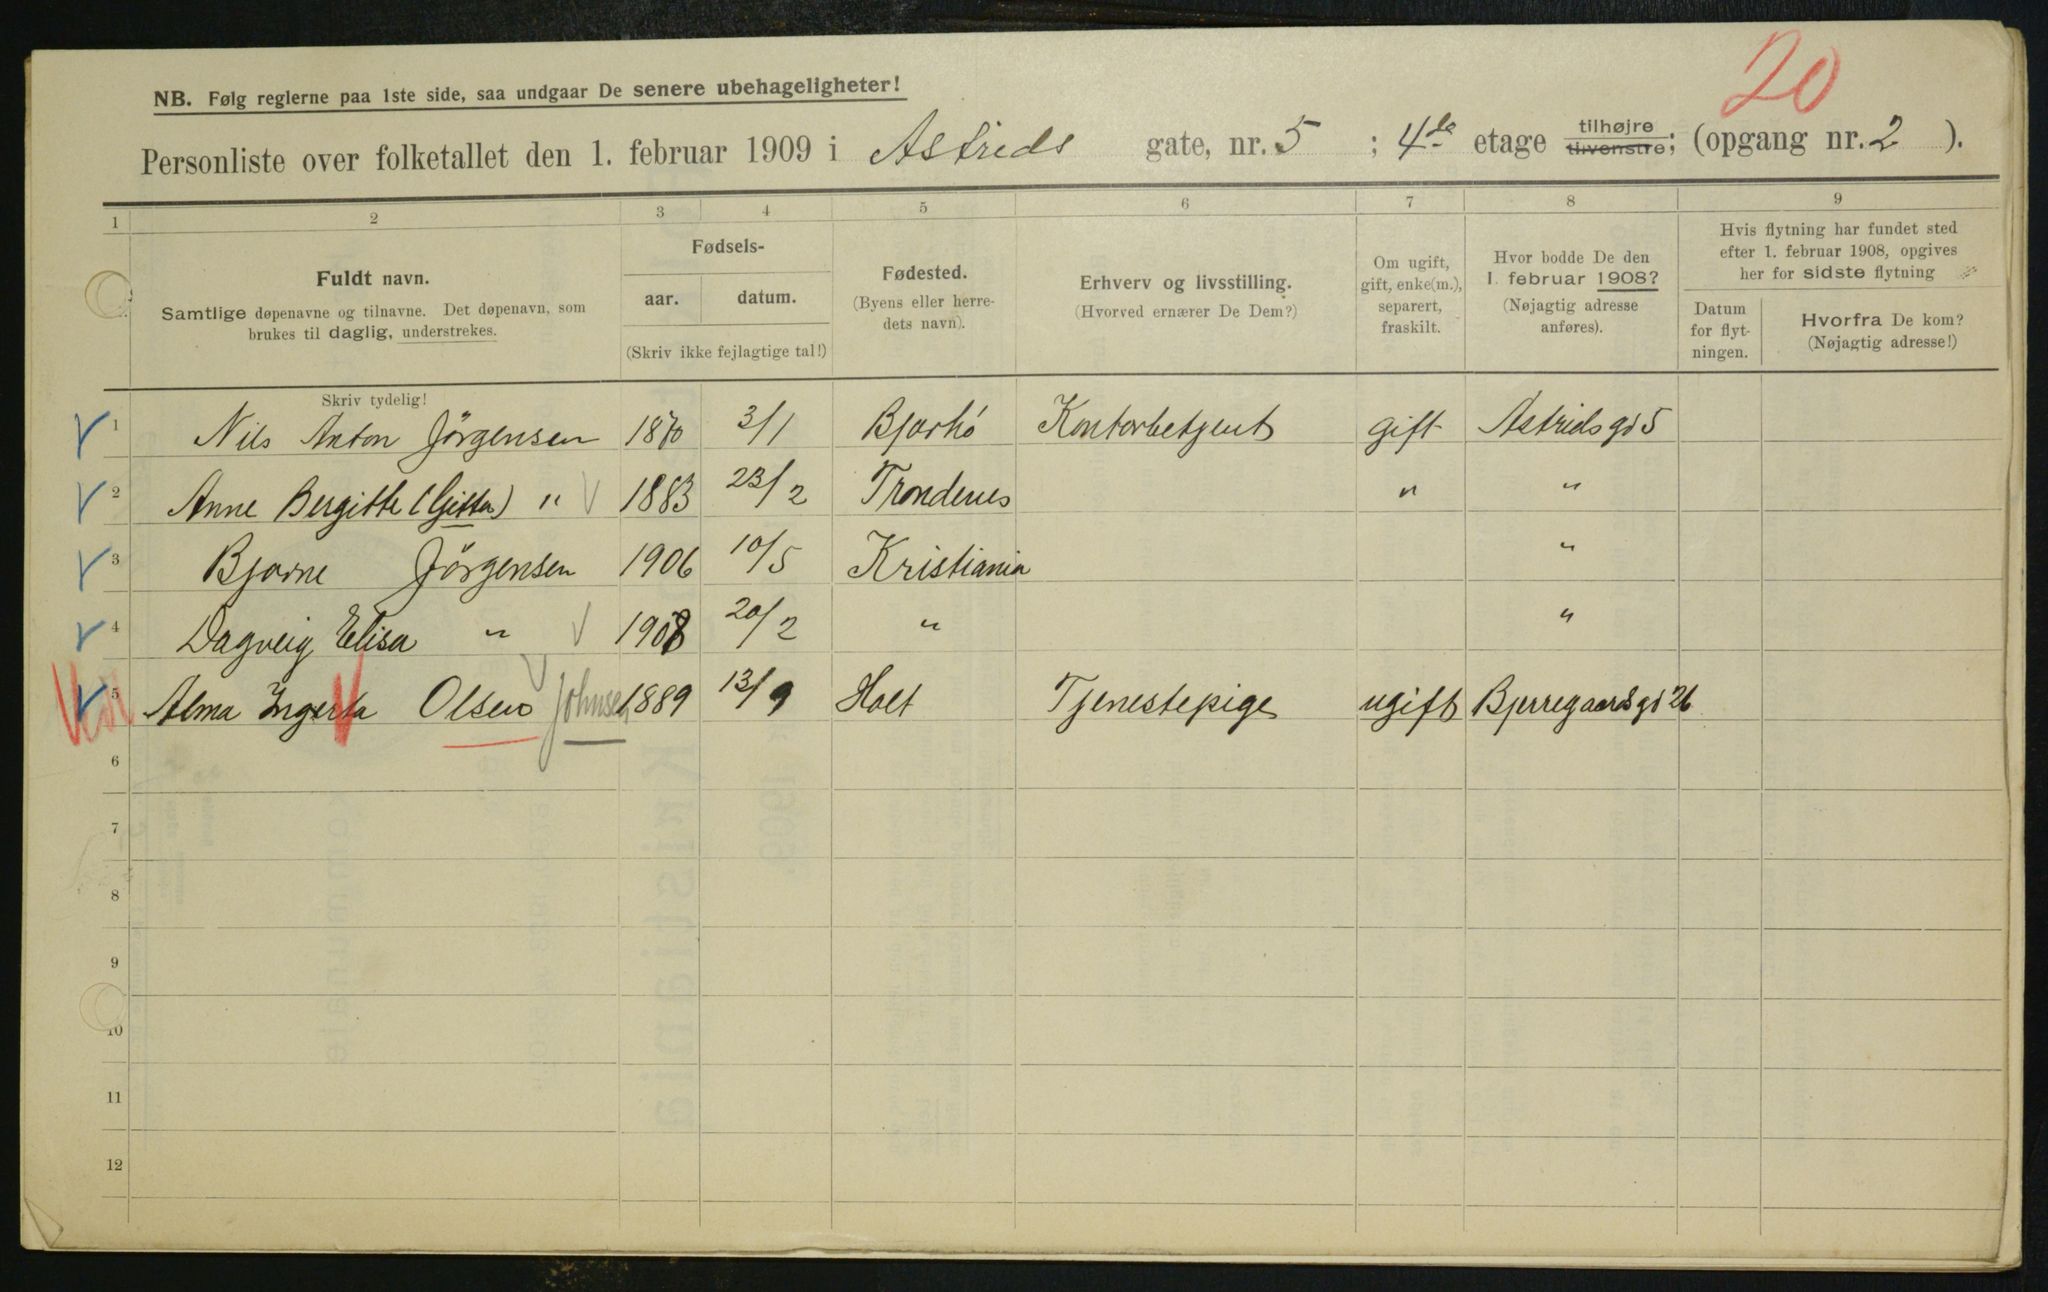 20
NB. Følg reglerne paa 1ste side, saa undgaar De senere ubehageligheter!
Personliste over folketallet den 1. februar 1909 i Astrids gate, nr. 5 ; 4de etage tilhøjre tilvenstre; (opgang nr. 2 ).
1 2 3 4 5 6 7 8 9
Fuldt navn.
Samtlige døpenavne og tilnavne. Det døpenavn, som
brukes til daglig, understrekes.
Fødsels-
aar. datum.
(Skriv ikke fejlagtige tal!)
Fødested.
(Byens eller herre-
dets navn).
Erhverv og livsstilling.
(Hvorved ernærer De Dem?)
Om ugift,
gift, enke(m.),
separert,
fraskilt.
Hvor bodde De den
1. februar 1908?
(Nøjagtig adresse
anføres).
Hvis flytning har fundet sted
efter 1. februar 1908, opgives
her for sidste flytning
Datum
for flyt-
ningen.
Hvorfra De kom?
(Nøjagtig adresse!)
Skriv tydelig!
1 Nils Anton Jörgensen 1870 3/1 Kontorbetjent gift Astrids gd 5
2 Anne Bergitte (Gitta) " 1883 23/2 Trondenes " "
3 Bjarne Jörgensen 1906 10/5 Kristiania "
4 Dagveig Elisa " 1908 20/2 " "
5 Alma Ingerta Olsen Johnsen 1889 13/9 Holt Tjenestepige ugift Bjerregaards gd 26
6
7
8
9
10
11
12